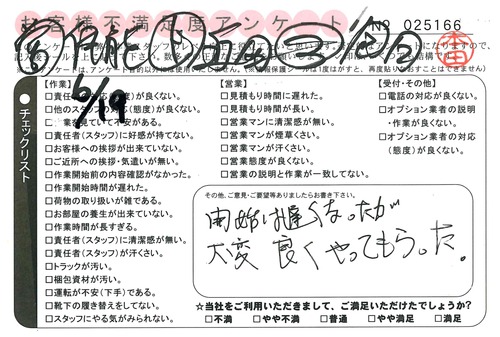 お客様不満足度アンケート
№ 025166
6/19
チェックリスト
【作業】
□責任者(スタッフ)に好感が持てない。
□お客様への挨拶が出来ていない。
□ご近所への挨拶・気遣いが無い。
□作業開始前の内容確認がなかった。
□作業開始時間が遅れた。
□荷物の取り扱いが雑である。
□お部屋の養生が出来ていない。
□作業時間が長すぎる。
□責任者(スタッフ)に清潔感が無い。
□責任者(スタッフ)が汗くさい。
□トラックが汚い。
□梱包資材が汚い。
□運転が不安(下手)である。
□靴下の履き替えをしてない。
□スタッフにやる気がみられない。
【営業】
□見積もり時間に遅れた。
□見積もり時間が長い。
□営業マンに清潔感が無い。
□営業マンが煙草くさい。
□営業マンが汗くさい。
□営業態度が良くない。
□営業の説明と作業が一致してない。
【受付・その他】
□電話の対応が良くない。
□オプション業者の説明
・作業が良くない。
□オプション業者の対応
(態度)が良くない。
その他、ご意見・ご要望等ありましたらお書き下さい。
開始は遅くなったが
大変良くやってもらった。
☆当社をご利用いただきまして、ご満足いただけたでしょうか?
□不満 □やや不満 □普通 □やや満足 □満足